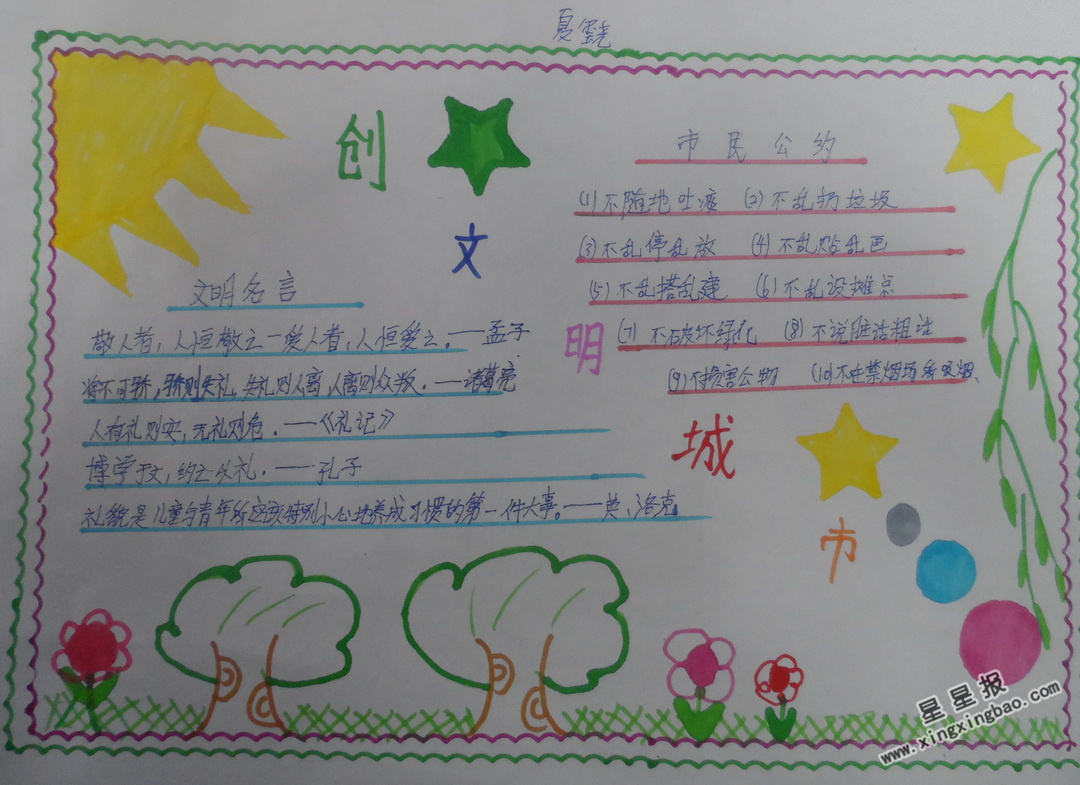 夏
创
文
明
城
市
文明名言
敬人者，人恒敬之一爱人者，人恒爱之。——孟子
将不可骄，骄则失礼，失礼则人离，人离则众叛。——诸葛亮
人有礼则安，无礼则危。——《礼记》
博学于文，约之以礼。——孔子
礼貌是儿童与青年所应该特别小心地养成习惯的第一件大事。——英、洛克。
市民公约
(1)不随地吐痰 (2)不乱扔垃圾
(3)不乱停乱放 (4)不乱贴乱画
(5)不乱搭乱建 (6)不乱设摊点
(7)不破坏绿化 (8)不说脏话粗话
(9)不损害公物 (10)不在禁烟场所吸烟、
星星报
www.xingxingbao.com